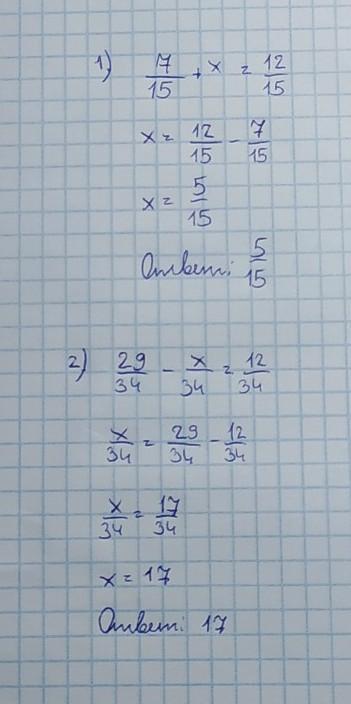 1) 7/15 + x = 12/15
x = 12/15 - 7/15
x = 5/15
Ответ: 5/15
2) 29/34 - x/34 = 12/34
x/34 = 29/34 - 12/34
x/34 = 17/34
x = 17
Ответ: 17